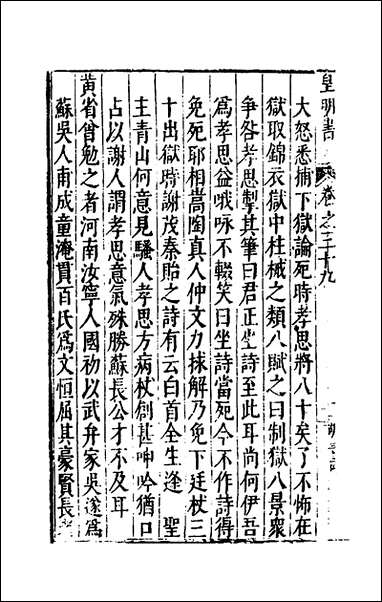 皇明書 卷之三十九
大怒悉捕下獄論死時孝思將八十矣了不怖在
獄取錦衣獄中柱械之類八賦之曰制獄八景衆
爭咎孝思掣其筆曰君正坐詩至此耳尚何伊吾
爲孝思益哦咏不輟笑曰坐詩當死今不作詩得
免死耶相嵩陶真人仲文力捄解乃免下廷杖三
十出獄時謝茂秦貽之詩有云白首全生逢 聖
主青山何意見騷人孝思方病杖創甚呻吟猶口
占以謝人謂孝思意氣殊勝蘇長公才不及耳
黄省曾勉之者河南汝寧人國初以武弁家吳遂爲
蘇吳人甫成童淹貫百氏爲文恒屈其豪賢長者